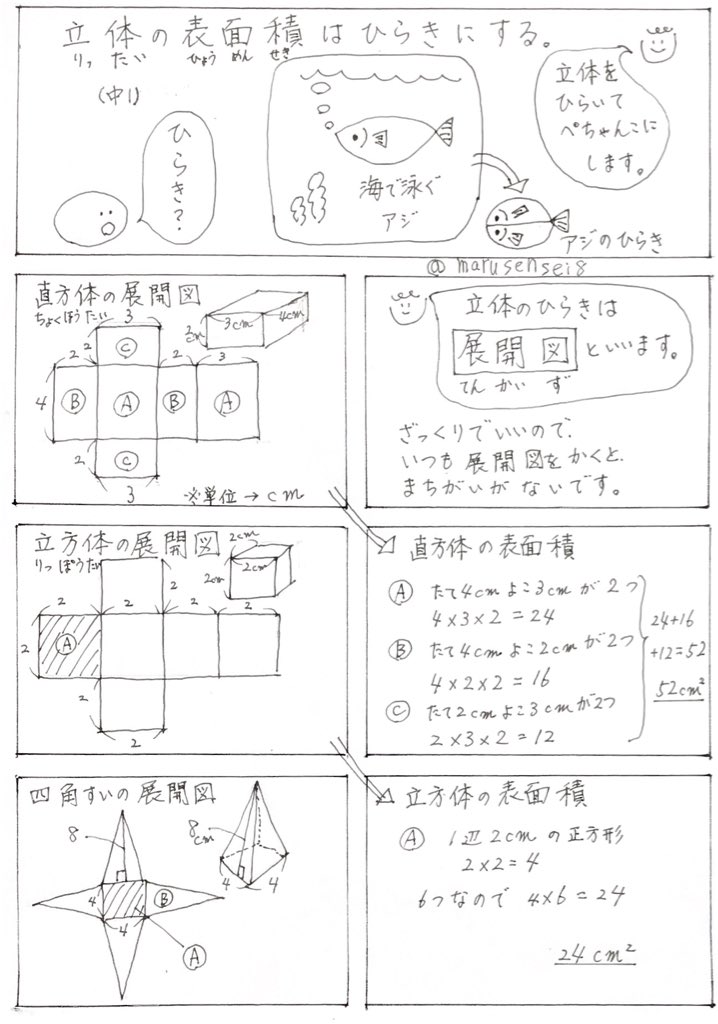 立体の表面積はひらきにする。
りったい ひょうめんせき
(中1)
ひらき?
海で泳ぐ
アジ
アジのひらき
立体を
ひらいて
ぺちゃんこに
します。
@marusensei8
直方体の展開図
ちょくほうたい
3
2cm 3cm 4cm
2 C
2 2 3
4 B A B A
2 C
3
※単位→cm
立体のひらきは
展開図といいます。
てんかいず
ざっくりでいいので、
いつも展開図をかくと、
まちがいがないです。
立方体の展開図
りっぽうたい
2cm
2cm 2cm
2
2 2 2 2
2 A
2
2
直方体の表面積
A たて4cmよこ3cmが2つ
4×3×2=24
B たて4cmよこ2cmが2つ
4×2×2=16
C たて2cmよこ3cmが2つ
2×3×2=12
24+16
+12=52
52cm²
四角すいの展開図
8
8cm
4 4
4 B
4
A
立方体の表面積
A 1辺2cmの正方形
2×2=4
6つなので 4×6=24
24cm²